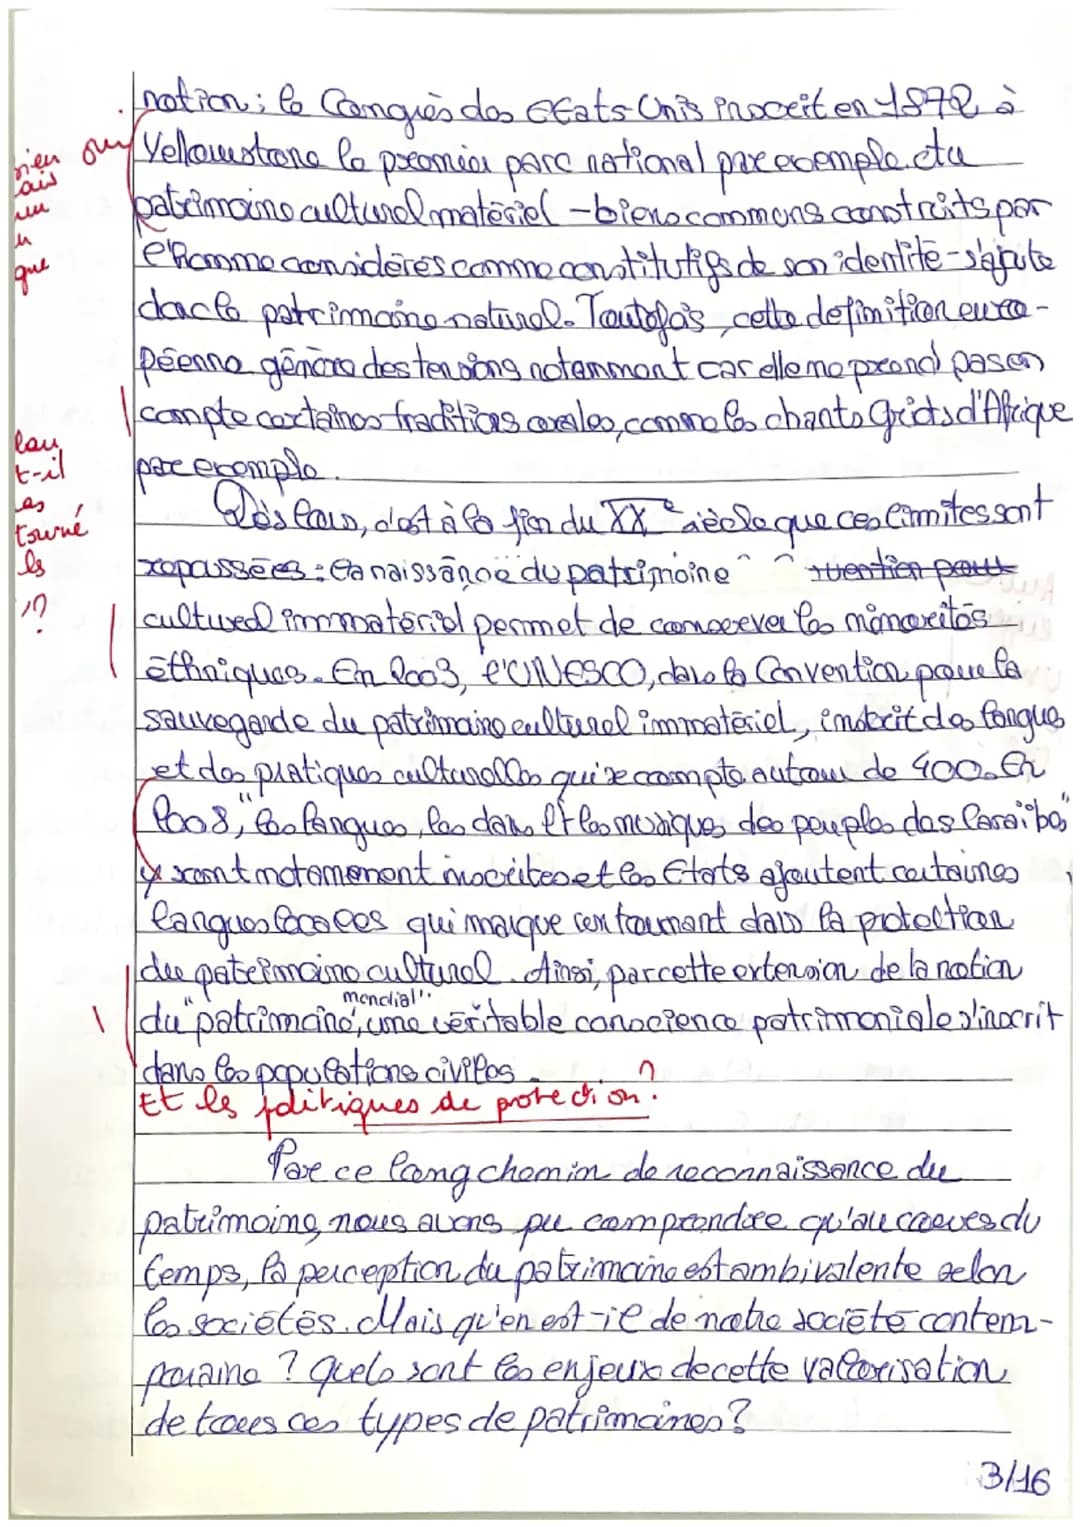 nation : le Congrès des Etats-Unis inscrit en 1872 à
oui
Yellowstone le premier parc national par exemple. Au
patrimoine culturel matériel - biens communs construits par
l'Homme considérés comme constitutifs de son identité - s'ajoute
que
donc le patrimoine naturel. Toutefois, cette définition euro-
péenne génère des tensions notamment car elle ne prend pas en
compte certaines traditions orales, comme les chants Griots d'Afrique
par exemple.
t-il
Dès lors, c'est à la fin du XXe siècle que ces limites sont
tourné
repassées : la naissance du patrimoine
culturel immatériel permet de conserver les minorités
éthniques. En 2003, l'UNESCO, dans la Convention pour la
sauvegarde du patrimoine culturel immatériel, inscrit des langues
et des pratiques culturelles qui se compte autour de 400. En
2008, "les langues, les dans et les musiques des peuples des Caraïbes"
y sont notamement inscrites et les Etats ajoutent certaines
langues locales qui marque un tournant dans la protection
du patrimoine culturel. Ainsi, par cette extension de la notion
du "patrimoine mondial", une véritable conscience patrimoniale s'inscrit
dans les populations civiles.
Et les politiques de protection ?
Par ce long chemin de reconnaissance du
patrimoine, nous avons pu comprendre qu'au cours du
temps, la perception du patrimoine est ambivalente selon
les sociétés. Mais qu'en est-il de notre société contem-
poraine ? Quels sont les enjeux de cette valorisation
de tous ces types de patrimoines ?
3/16